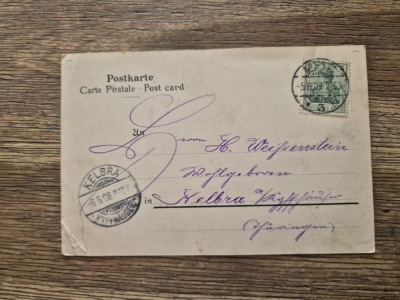 Postkarte
Carte Postale - Post card
An
Herrn H. Weißenstein
Wohlgeboren
in Kelbra a/Kyffhäuser
(Thüringen)
KELBRA
6.5.08
(KYFFHÄUSER)